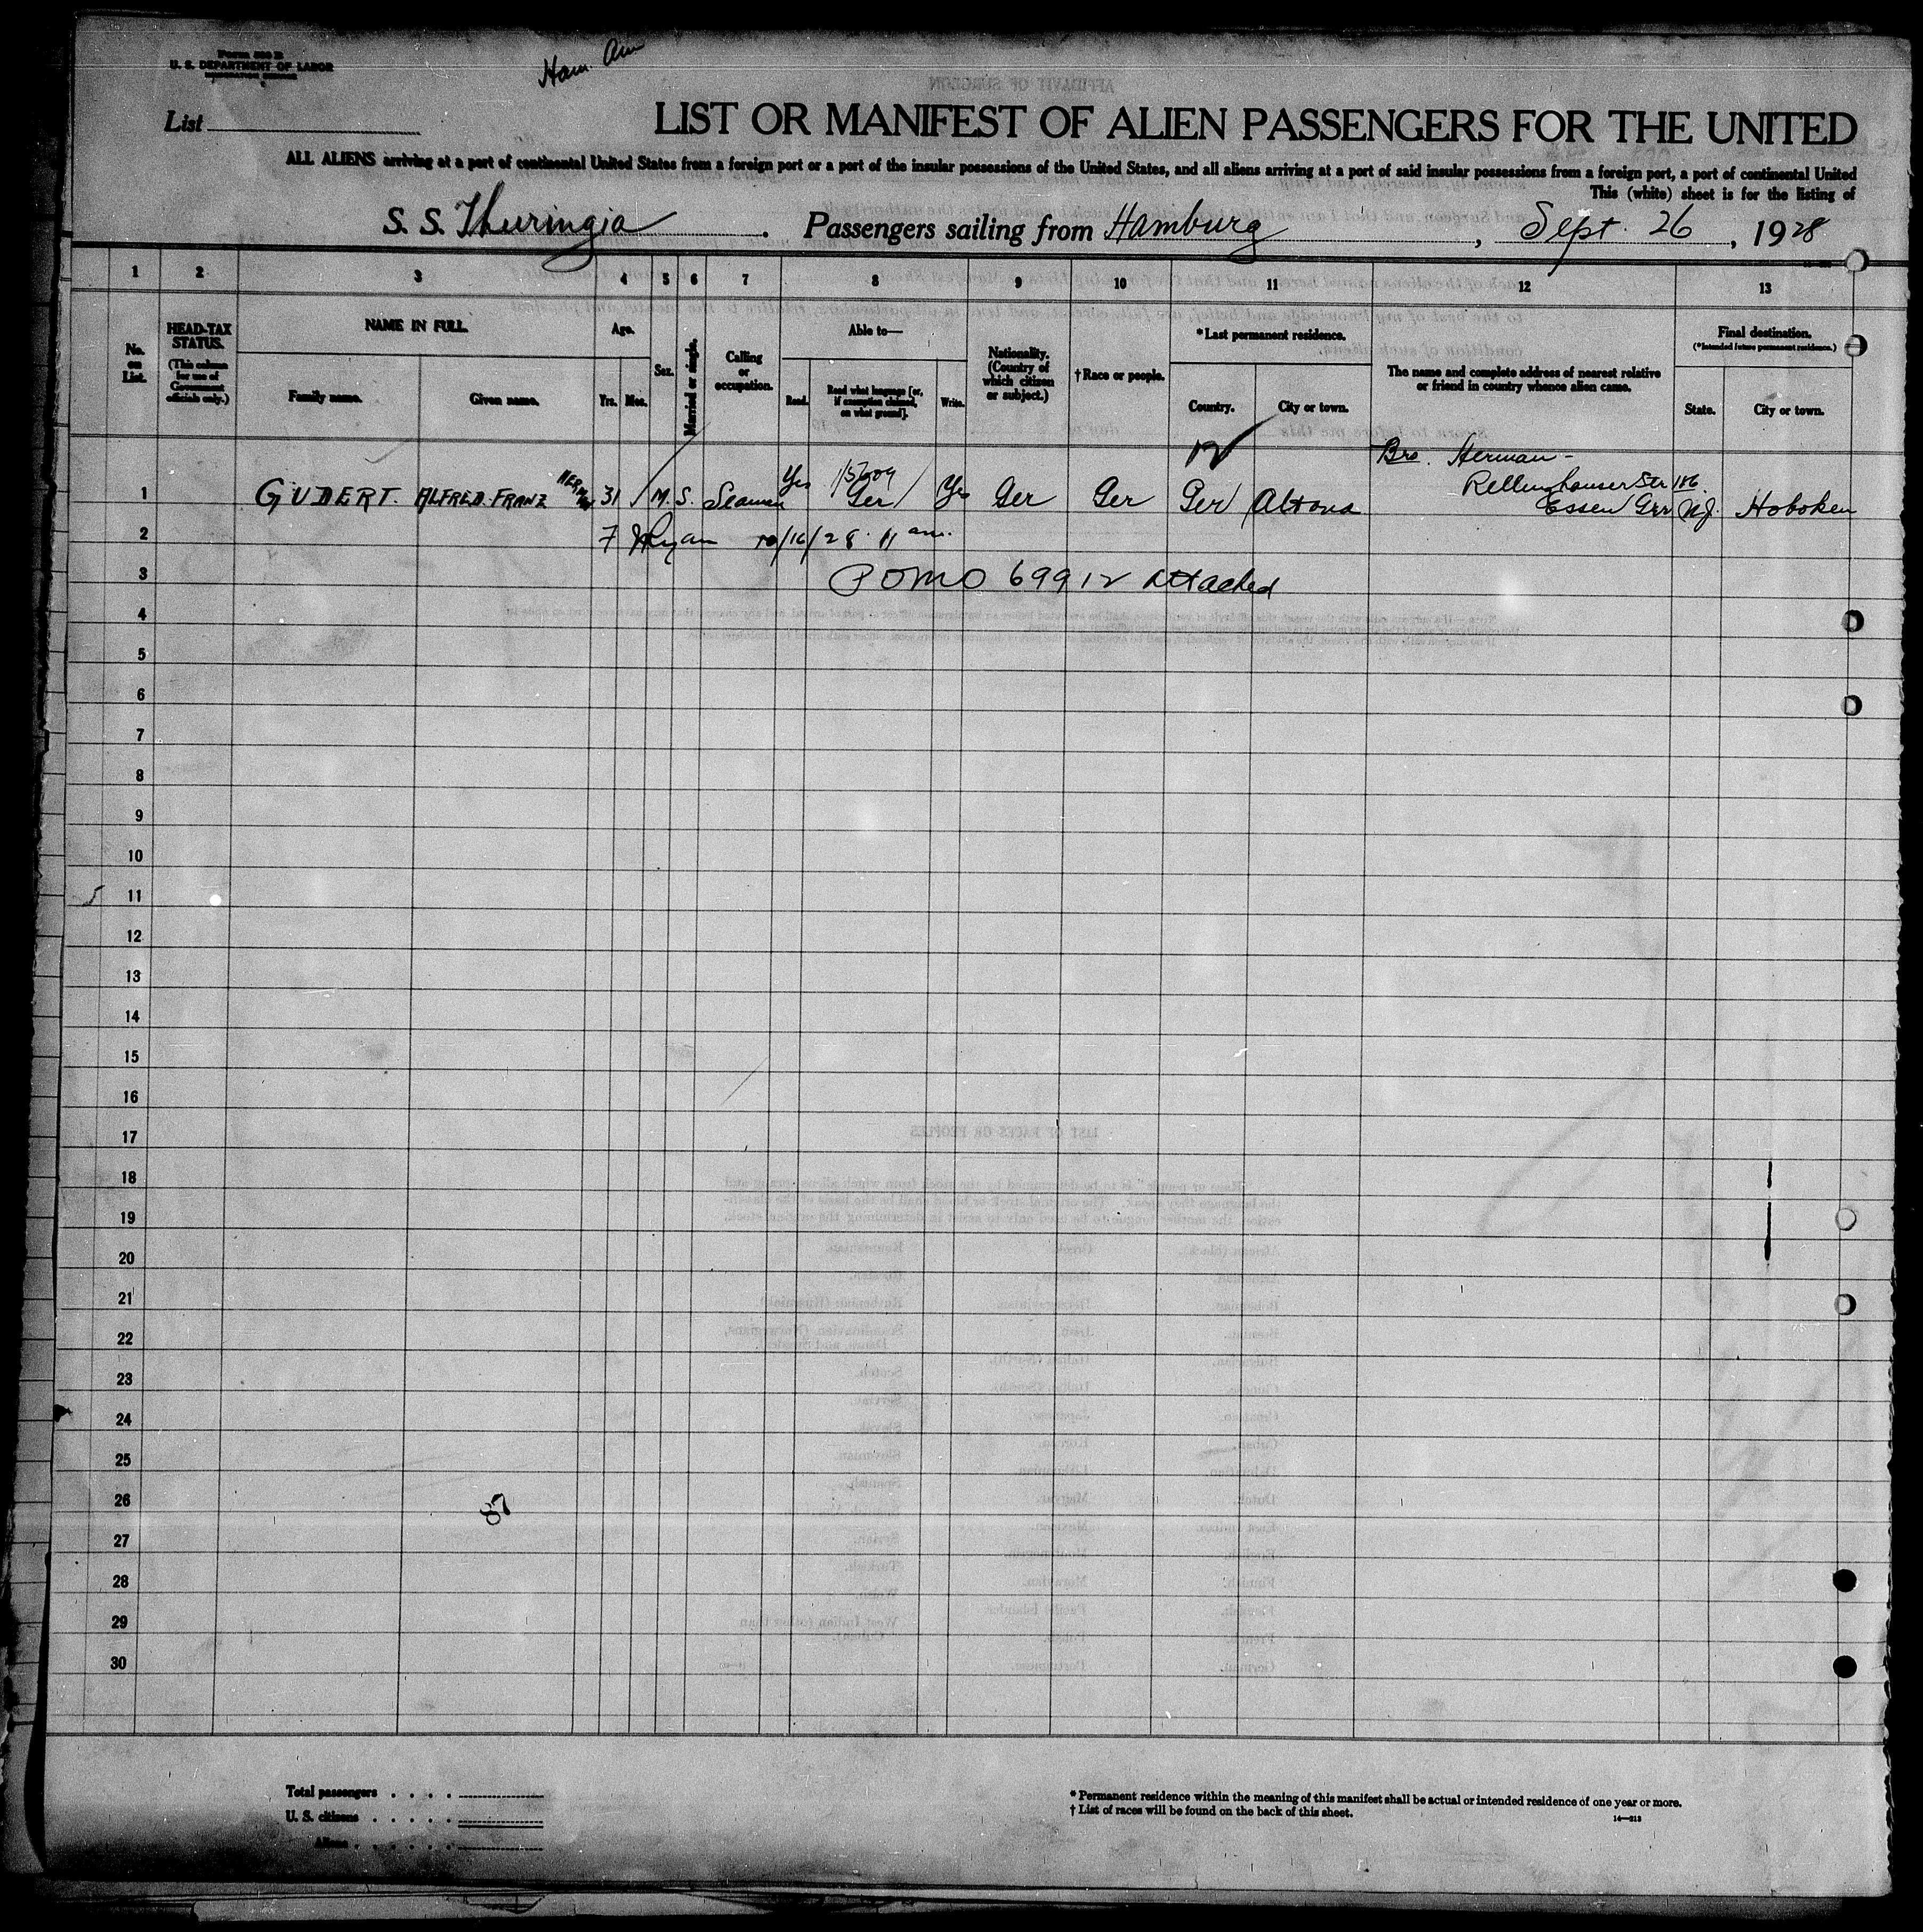 Form 500 B
U. S. DEPARTMENT OF LABOR
IMMIGRATION SERVICE
Ham. Am
List
LIST OR MANIFEST OF ALIEN PASSENGERS FOR THE UNITED
ALL ALIENS arriving at a port of continental United States from a foreign port or a port of the insular possessions of the United States, and all aliens arriving at a port of said insular possessions from a foreign port, a port of continental United
This (white) sheet is for the listing of
S. S. Thuringia . Passengers sailing from Hamburg , Sept. 26 , 1928
1 2 3 4 5 6 7 8 9 10 11 12 13
No. on List.
HEAD-TAX STATUS.
(This column for use of Government officials only.)
NAME IN FULL.
Family name. Given name.
Age.
Yrs. Mos.
Sex.
Married or single.
Calling or occupation.
Able to—
Read. Read what language [or, if exemption claimed, on what ground]. Write.
Nationality. (Country of which citizen or subject.)
†Race or people.
*Last permanent residence.
Country. City or town.
The name and complete address of nearest relative or friend in country whence alien came.
Final destination.
(*Intended future permanent residence.)
State. City or town.
12
Bro. Herman -
1 GUDERT. ALFRED. FRANZ HERMAN 31 M. S. Seaman Yes Ger Yes Ger Ger Ger Altona Rellinghauser Str 186 Essen Ger NJ. Hoboken
2 Ryan 10/16/28 11 am.
3 69912 Attached
4
5
6
7
8
9
10
11
12
13
14
15
16
17
18
19
20
21
22
23
24
25
26
87
27
28
29
30
Total passengers . . . .
U. S. citizens . . . . .
Aliens . . . . . .
* Permanent residence within the meaning of this manifest shall be actual or intended residence of one year or more.
† List of races will be found on the back of this sheet.
14—213